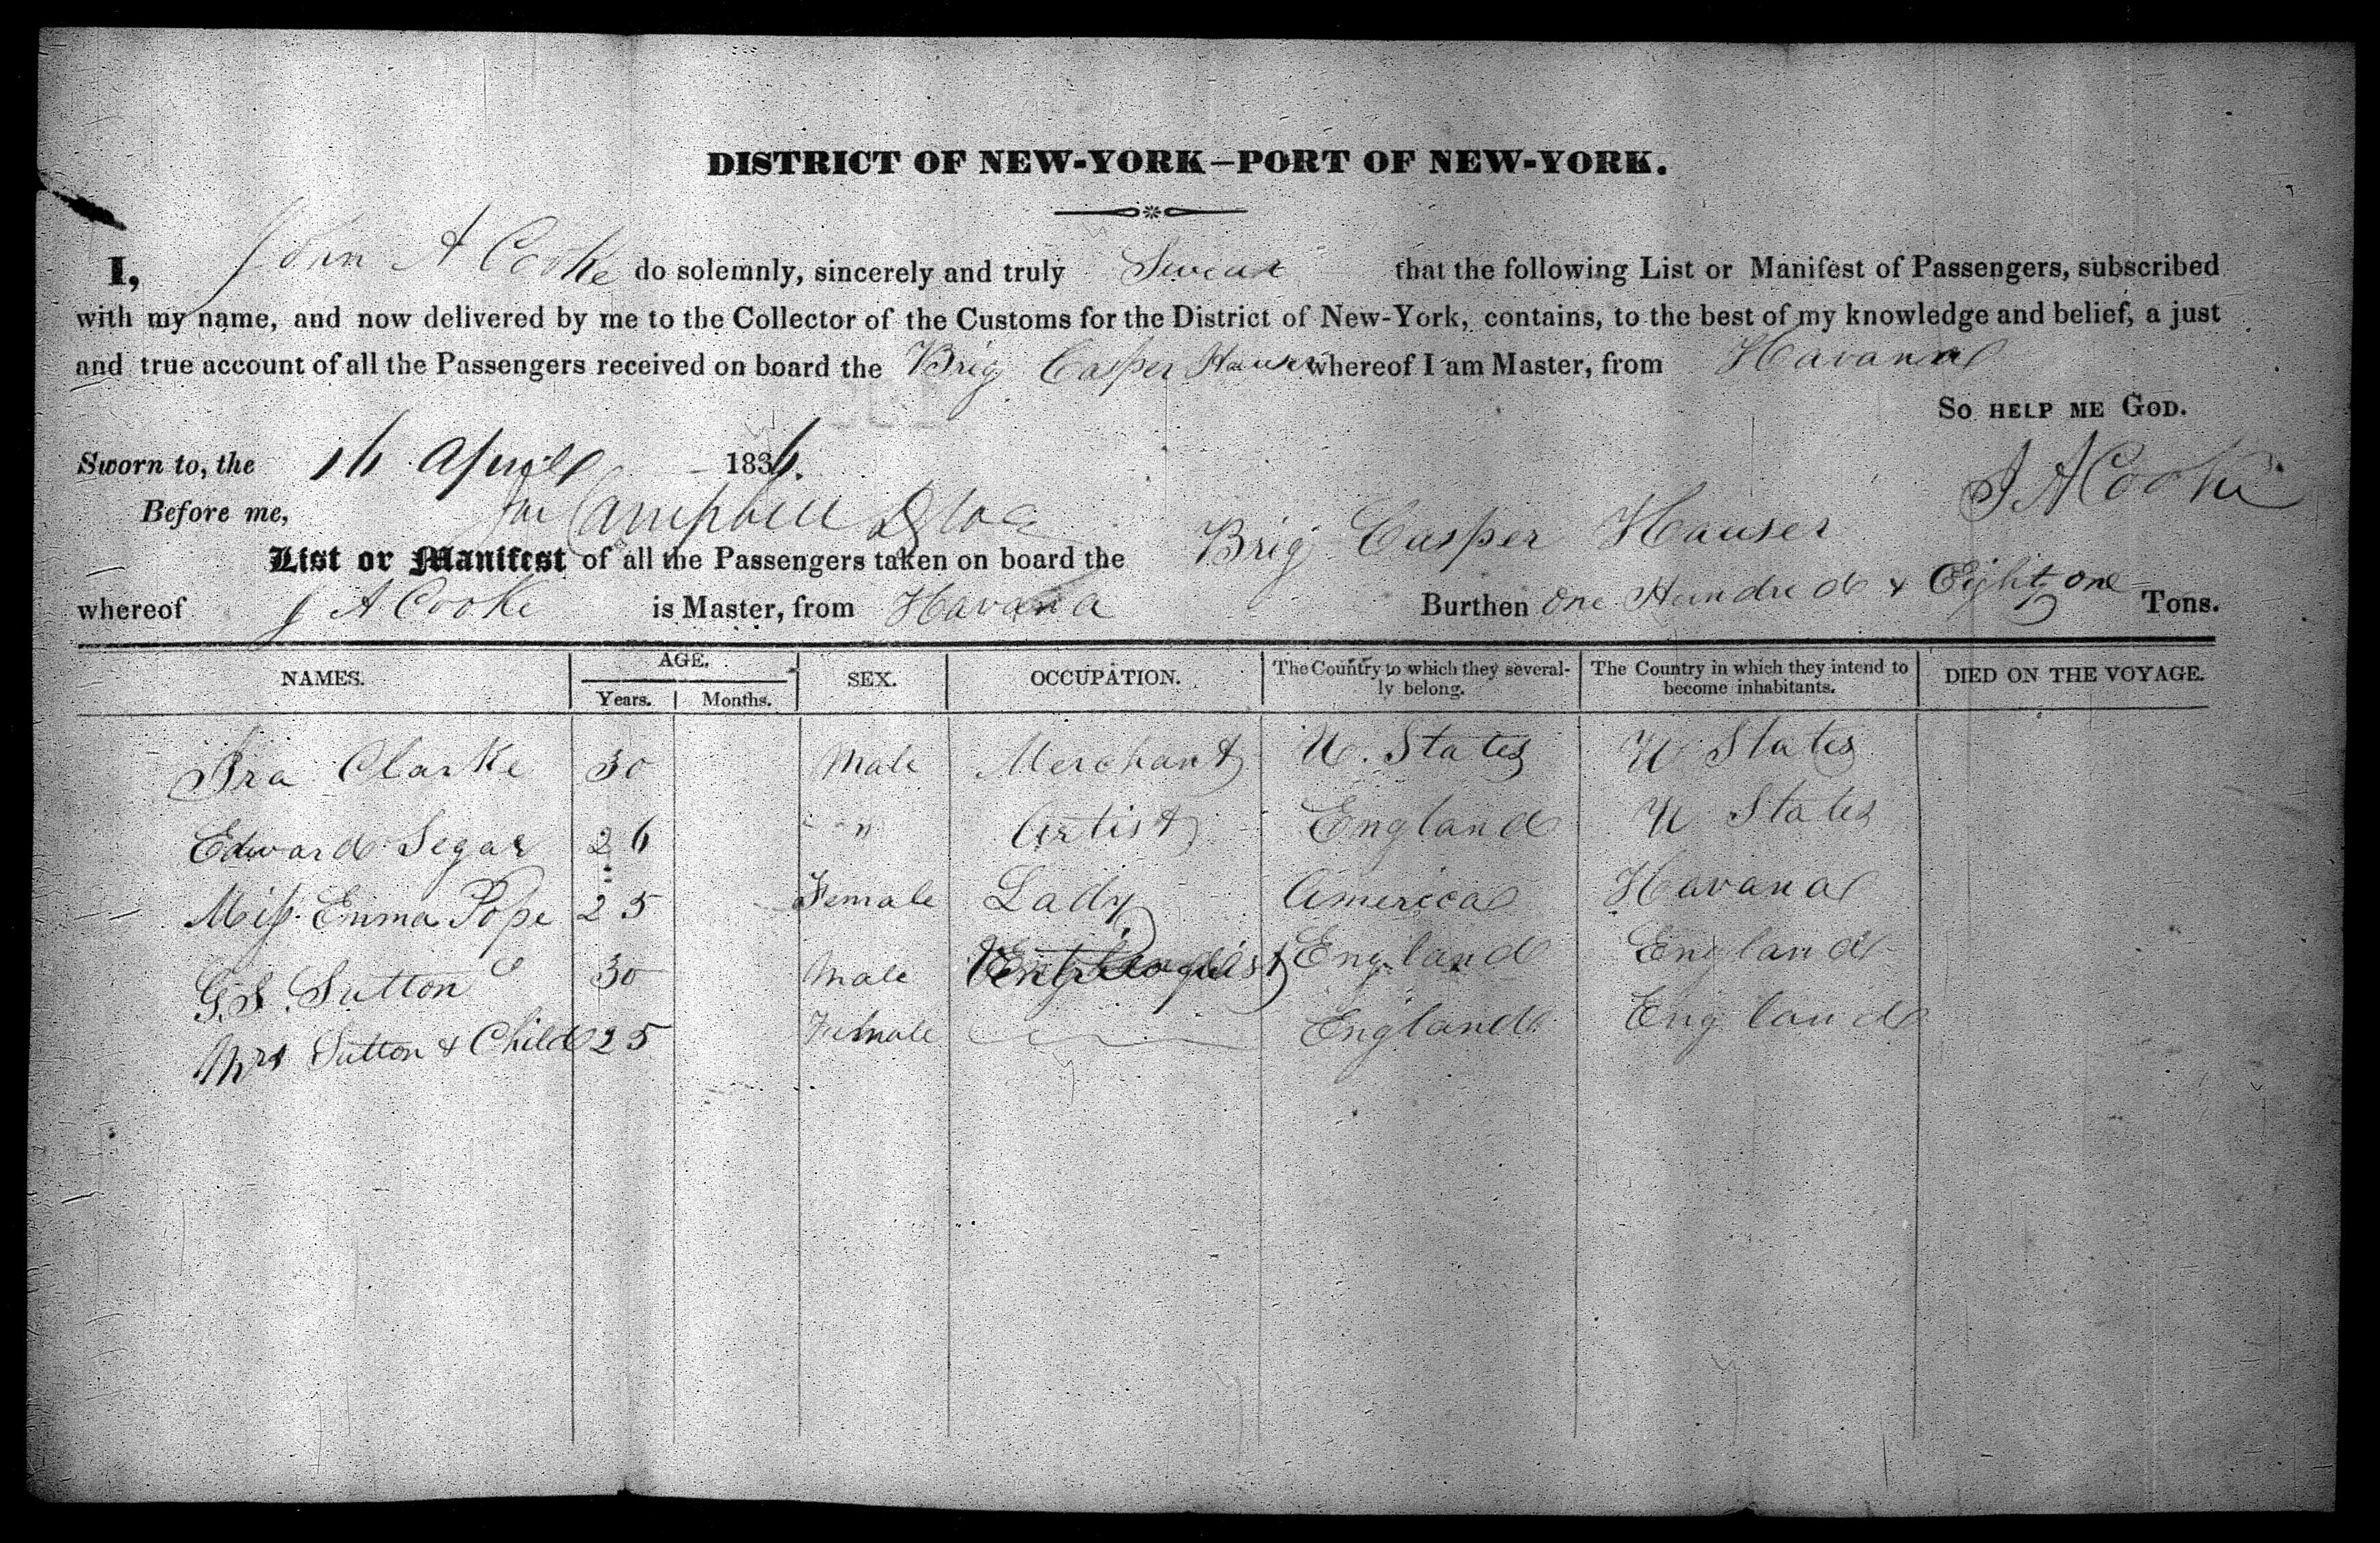 DISTRICT OF NEW-YORK—PORT OF NEW-YORK.
I, John A Cooke do solemnly, sincerely and truly Swear that the following List or Manifest of Passengers, subscribed
with my name, and now delivered by me to the Collector of the Customs for the District of New-York, contains, to the best of my knowledge and belief, a just
and true account of all the Passengers received on board the Brig Casper Hauser whereof I am Master, from Havana
SO HELP ME GOD.
Sworn to, the 16 April 1836.
J A Cooke
Before me, Campbell
List or Manifest of all the Passengers taken on board the Brig Casper Hauser
whereof J A Cooke is Master, from Havana Burthen One Hundred & Eighty one Tons.
NAMES. AGE. Years. Months. SEX. OCCUPATION. The Country to which they severally belong. The Country in which they intend to become inhabitants. DIED ON THE VOYAGE.
Ira Clarke 30 Male Merchant U. States U States
Edward Segar 26 " Artist England U States
Miss Emma Pope 25 Female Lady America Havana
G. S. Sutton 30 Male Ventriloquist England England
Mrs Sutton & Child 25 Female England England